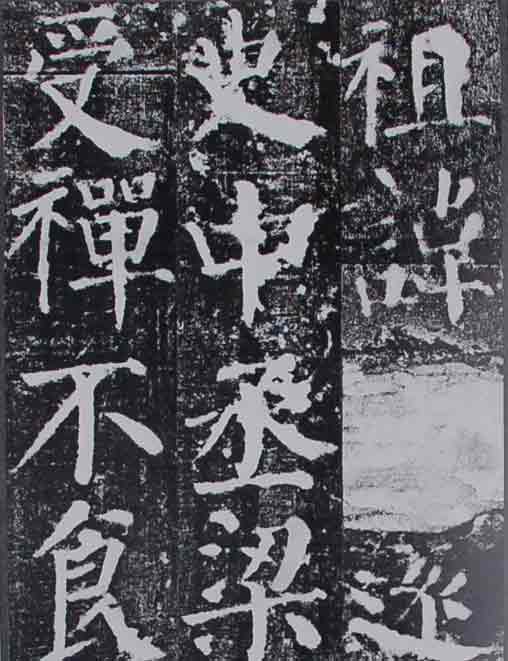 祖諱
史中丞梁
受禪不食